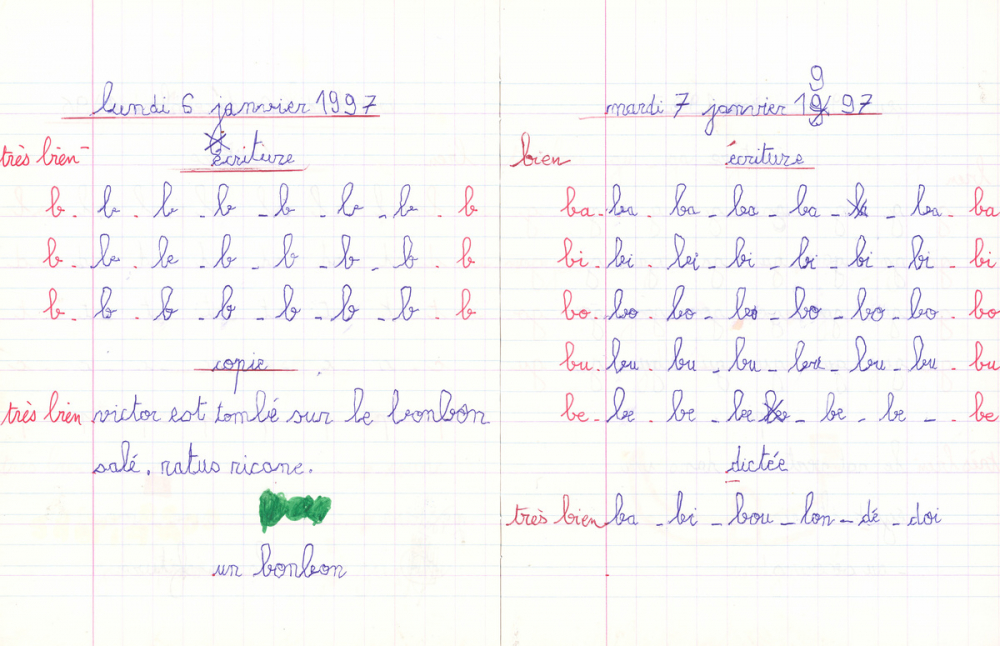 lundi 6 janvier 1997
très bien écriture
b . b . b . b _ b _ b _ b . b
b . b . b . b _ b _ b _ b . b
b . b . b . b _ b _ b _ b . b
copie
très bien victor est tombé sur le bonbon
salé. ratus ricane.
un bonbon
mardi 7 janvier 1997
bien écriture
ba . ba . ba _ ba _ ba _ _ ba . ba
bi . bi . bi _ bi _ bi _ bi _ bi . bi
bo . bo . bo _ bo _ bo _ bo _ bo . bo
bu . bu . bu _ bu _ bu _ bu _ bu . bu
be . be . be _ be _ be _ be _ . be
dictée
très bien ba _ bi _ bou _ lon _ dé _ doi